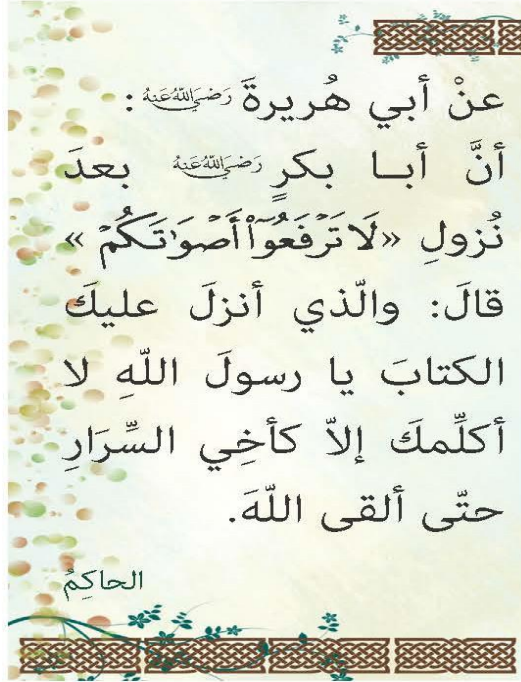 عنْ أبي هُريرةَ رَضِيَ اللَّهُ عَنْهُ :
أنَّ أبـا بكرٍ رَضِيَ اللَّهُ عَنْهُ بعدَ
نُزولِ «لَا تَرْفَعُوٓا۟ أَصْوَٰتَكُمْ»
قالَ: والّذي أنزلَ عليكَ
الكتابَ يا رسولَ اللّهِ لا
أكلِّمكَ إلاّ كأخِي السِّرَارِ
حتّى ألقى اللّهَ.
الحاكِمُ